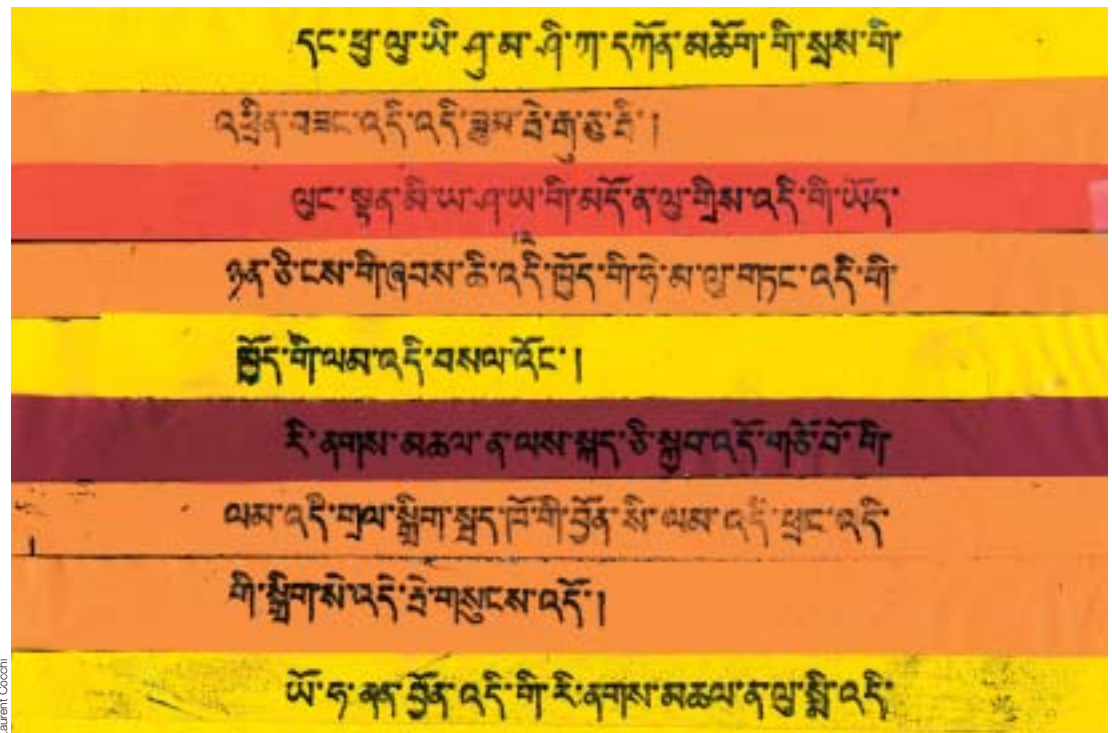 དང་ཕུ་ལུ་ཡི་ཤུ་མ་ཤི་ཀ་དཀོན་མཆོག་གི་སྲས་གི་
འཕྲིན་བཟང་འདི་འདི་
ལུང་སྟན་མི་ཡ་ཤ་ཡ་གི་མདོ་ན་ལུ་གྲིས་འདི་གི་ཡོད་
ཉན་ཅི་ངས་གི་ཞབས་ཆི་འདི་ཁྱོད་གི་ཧེ་མ་ལུ་གཏང་འདི་གི་
ཁྱོད་གི་ལམ་འདི་བསལ་འོང་།
རི་ནགས་མཆལ་ན་ལས་སྐད་ཅི་སྐྱབ་འདོ་གཙོ་བོ་གི་
ལམ་འདི་གྲལ་སྒྲིག་སྦད་ཁོ་གི་བྱོན་སི་ལམ་འདི་ཕྲང་འདི་
གི་སྒྲིག་སེ་འདི་ཊེ་གསུངས་འདོ།
ཡོ་ཧ་ནན་བྱོན་འདི་གི་རི་ནགས་མཆལ་ན་ལུ་
aurent Cocchi